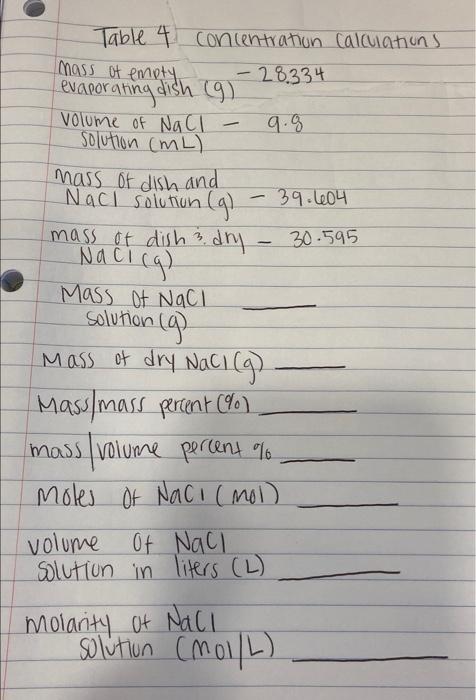 Table 4 concentration calculations
mass of empty - 28.334
evaporating dish (g)
volume of NaCl - 9.8
solution (mL)
mass of dish and
NaCl solution (g) - 39.604
mass of dish & dry - 30.595
NaCl (g)
Mass of NaCl ____
solution (g)
Mass of dry NaCl (g) ____
Mass/mass percent (%) ____
mass/volume percent % ____
Moles of NaCl (mol) ____
volume of NaCl
solution in liters (L) ____
molarity of NaCl
solution (mol/L) ____